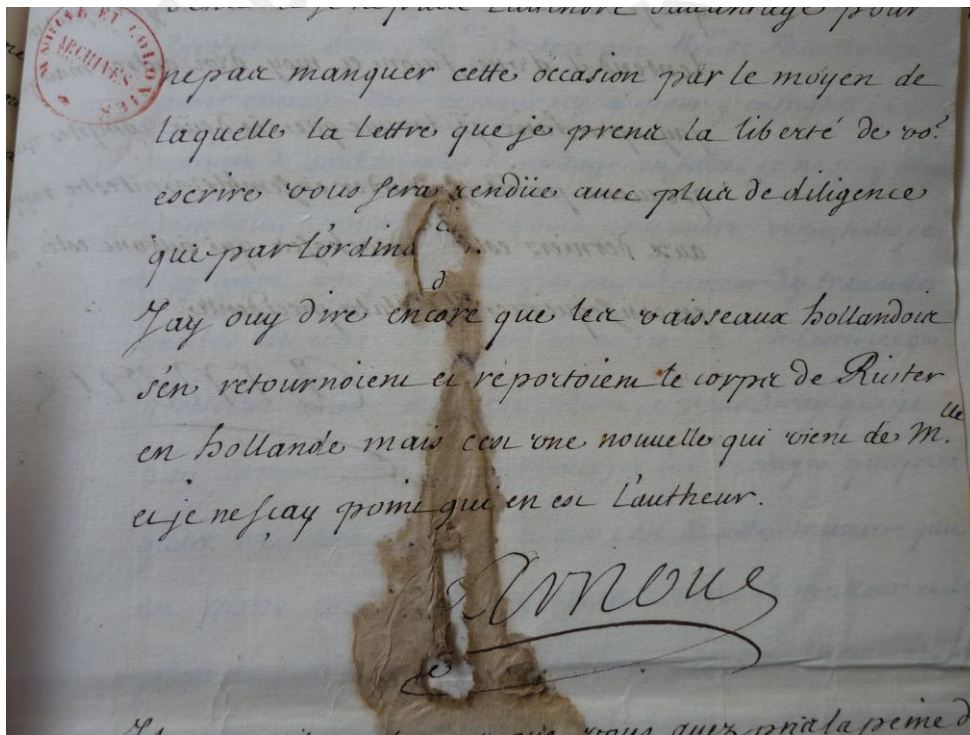 MARINE ET COLONIES
ARCHIVES
davantage pour
ne pas manquer cette occasion par le moyen de
laquelle la lettre que je prens la liberté de vo.s
escrire vous sera rendüe avec plus de diligence
que par l'ordina
J'ay ouy dire encore que les vaisseaux hollandois
s'en retournoient et réportoient le corps de Ruiter
en hollande mais c'est une nouvelle qui vient de M.lle
et je ne sçay point qui en est l'autheur.
Arnoul
vous avez pris la peine d